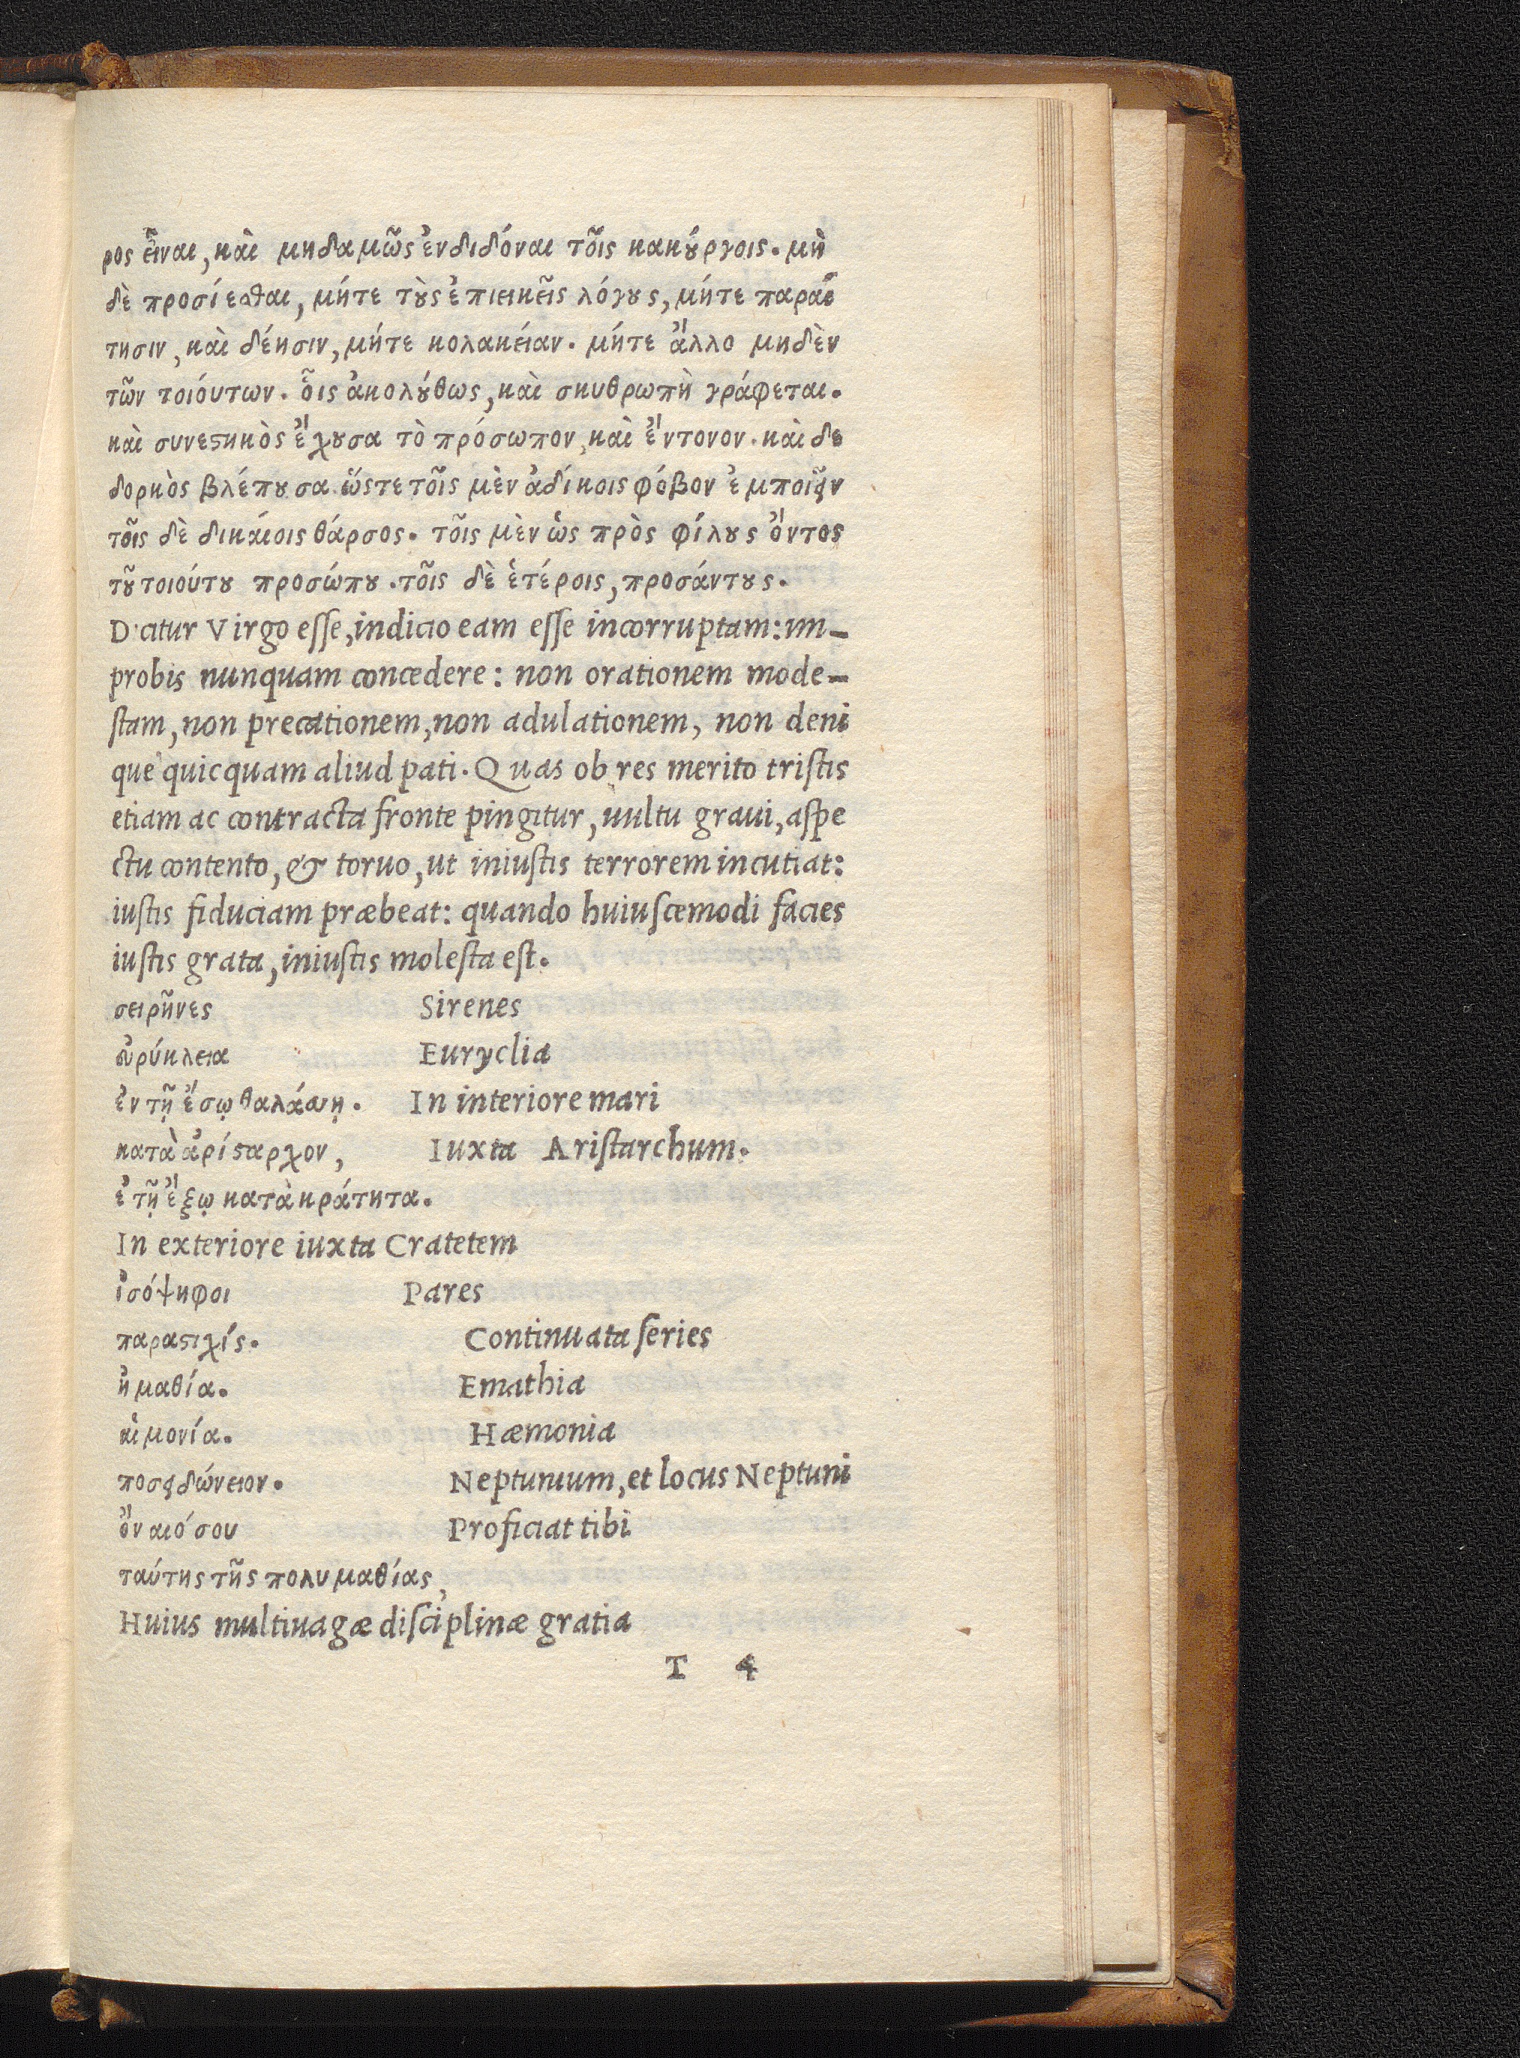 ρος εἶναι, καὶ μηδαμῶς ἐνδιδόναι τοῖς κακούργοις. μὴ
δὲ προσίεσθαι, μήτε τοὺς ἐπιεικεῖς λόγους, μήτε παραί
τησιν, καὶ δέησιν, μήτε κολακείαν. μήτε ἄλλο μηδὲν
τῶν τοιούτων. οἷς ἀκολούθως, καὶ σκυθρωπὴ γράφεται.
καὶ συνεστηκὸς ἔχουσα τὸ πρόσωπον, καὶ ἔντονον. καὶ δε
δορκὸς βλέπουσα. ὥστε τοῖς μὲν ἀδίκοις φόβον ἐμποιεῖν
τοῖς δὲ δικαίοις θάρσος. τοῖς μὲν ὡς πρὸς φίλους ὄντος
τοῦ τοιούτου προσώπου. τοῖς δὲ ἑτέροις, προσάντους.
Dicitur Virgo esse, indicio eam esse incorruptam: im-
probis nunquam concedere: non orationem mode-
stam, non precationem, non adulationem, non deni
que quicquam aliud pati. Quas ob res merito tristis
etiam ac contracta fronte pingitur, uultu graui, aspe
ctu contento, & toruo, ut iniustis terrorem incutiat:
iustis fiduciam præbeat: quando huiuscemodi facies
iustis grata, iniustis molesta est.
σειρῆνες Sirenes
εὐρύκλεια Euryclia
ἐν τῇ ἔσῳ θαλάσσῃ. In interiore mari
κατὰ ἀρίσταρχον, Iuxta Aristarchum.
ἐ τῇ ἔξῳ κατὰ κράτητα.
In exteriore iuxta Cratetem
ἰσόψηφοι Pares
παραστιχίς. Continuata series
ἠμαθία. Emathia
αἱμονία. Hæmonia
ποσειδώνειον. Neptunium, et locus Neptuni
ὄναιό σου Proficiat tibi
ταύτης τῆς πολυμαθίας,
Huius multiuagæ disciplinæ gratia
T 4